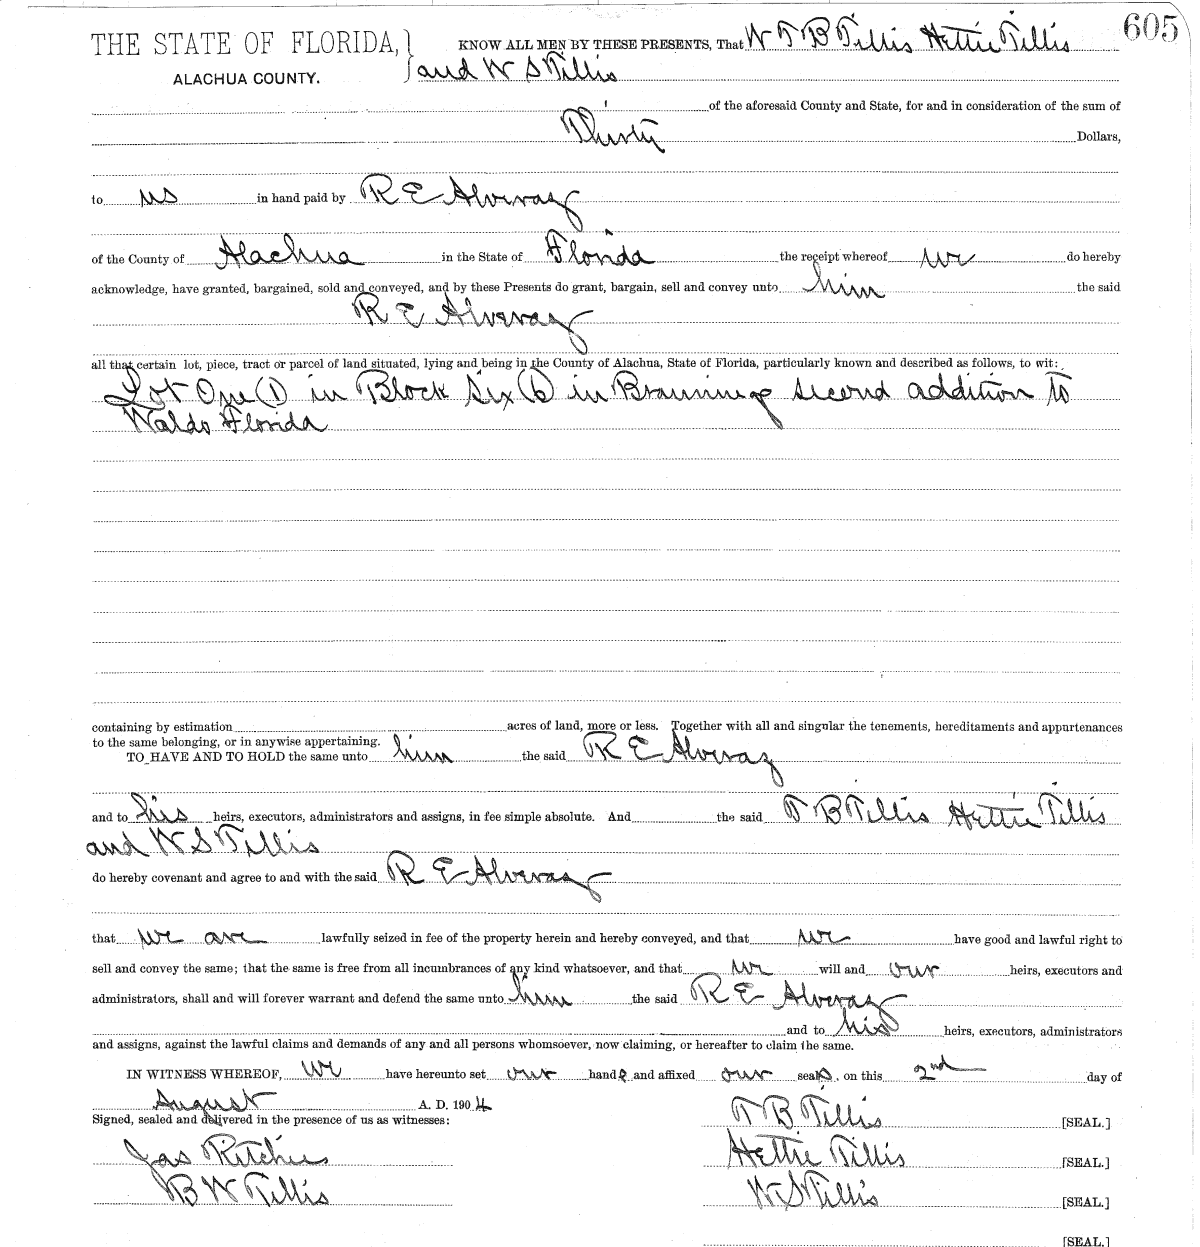 605
THE STATE OF FLORIDA, } KNOW ALL MEN BY THESE PRESENTS, That W T B Tillis Hettie Tillis
ALACHUA COUNTY. and W S Tillis
of the aforesaid County and State, for and in consideration of the sum of
Thirty Dollars,
to us in hand paid by R E Alveraz
of the County of Alachua in the State of Florida the receipt whereof we do hereby
acknowledge, have granted, bargained, sold and conveyed, and by these Presents do grant, bargain, sell and convey unto him the said
R E Alveraz
all that certain lot, piece, tract or parcel of land situated, lying and being in the County of Alachua, State of Florida, particularly known and described as follows, to wit:
Lot One (1) in Block Six (6) in second addition to
Waldo Florida
containing by estimation acres of land, more or less. Together with all and singular the tenements, hereditaments and appurtenances
to the same belonging, or in anywise appertaining.
TO HAVE AND TO HOLD the same unto him the said R E Alveraz
and to his heirs, executors, administrators and assigns, in fee simple absolute. And the said T B Tillis Hettie Tillis
and W S Tillis
do hereby covenant and agree to and with the said R E Alveraz
that we are lawfully seized in fee of the property herein and hereby conveyed, and that we have good and lawful right to
sell and convey the same; that the same is free from all incumbrances of any kind whatsoever, and that we will and our heirs, executors and
administrators, shall and will forever warrant and defend the same unto him the said R E Alveraz
and to his heirs, executors, administrators
and assigns, against the lawful claims and demands of any and all persons whomsoever, now claiming, or hereafter to claim the same.
IN WITNESS WHEREOF, we have hereunto set our hands and affixed our seals, on this 2nd day of
August A. D. 1904
Signed, sealed and delivered in the presence of us as witnesses: T B Tillis [SEAL.]
Jas Ritchie Hettie Tillis [SEAL.]
B W Tillis W S Tillis [SEAL.]
[SEAL.]